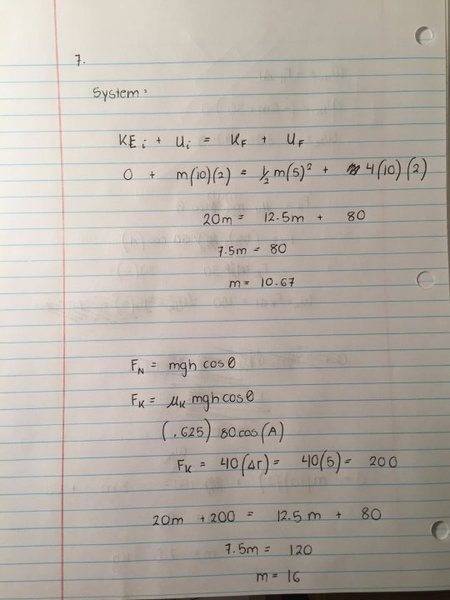 7.
System:
KE i + Ui = KF + UF
0 + m(10)(2) = 1/2 m(5)² + 4(10)(2)
20m = 12.5m + 80
7.5m = 80
m = 10.67
FN = mgh cosθ
FK = μK mgh cosθ
(.625) 80 cos(A)
FK = 40(Δr) = 40(5) = 200
20m + 200 = 12.5m + 80
7.5m = 120
m = 16